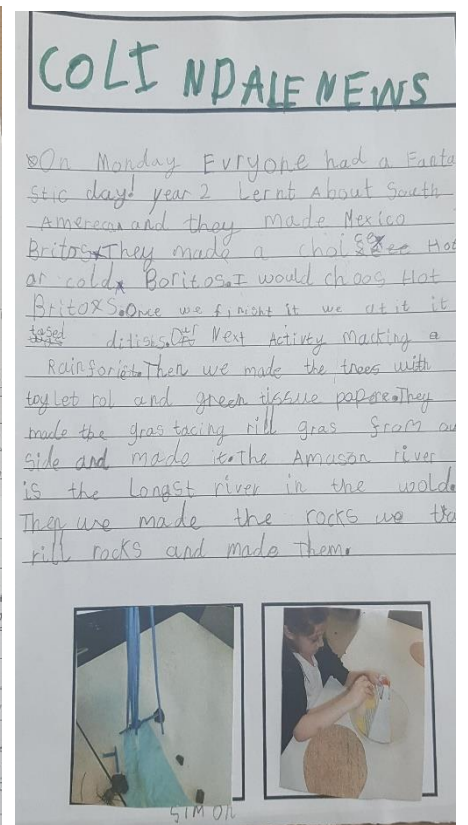 COLINDALE NEWS
On Monday Evryone had a Fanta
stic day! year 2 Lernt About South
Amerecan and they made Mexico
Britos. They made a choi Hot
or cold Boritos. I would choos Hot
Britoxs. Once we finisht it we at it it
tased ditists. Our Next Activty macking a
Rainforiet. Then we made the trees with
toylet rol and green tissue papere. They
made the gras tacing rill gras from ou
side and made it. the Amason river
is the Longst river in the wold.
Then we made the rocks we
rill rocks and made them.
SIMON